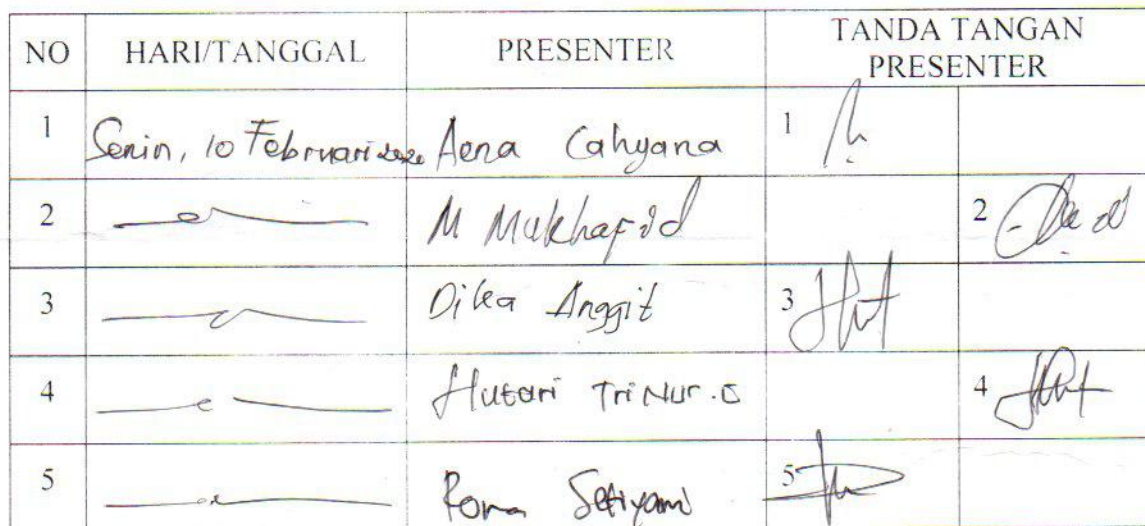 NO HARI/TANGGAL PRESENTER TANDA TANGAN PRESENTER
1 Senin, 10 Februari 2020 Aena Cahyana 1
2 M Mukhafid 2
3 Dika Anggit 3
4 Hutari Tri Nur. S 4
5 Setiyami 5